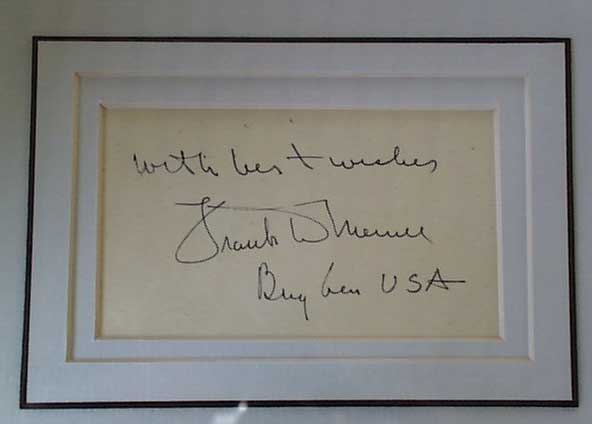 with best wishes
Frank D Merrill
Brig Gen USA